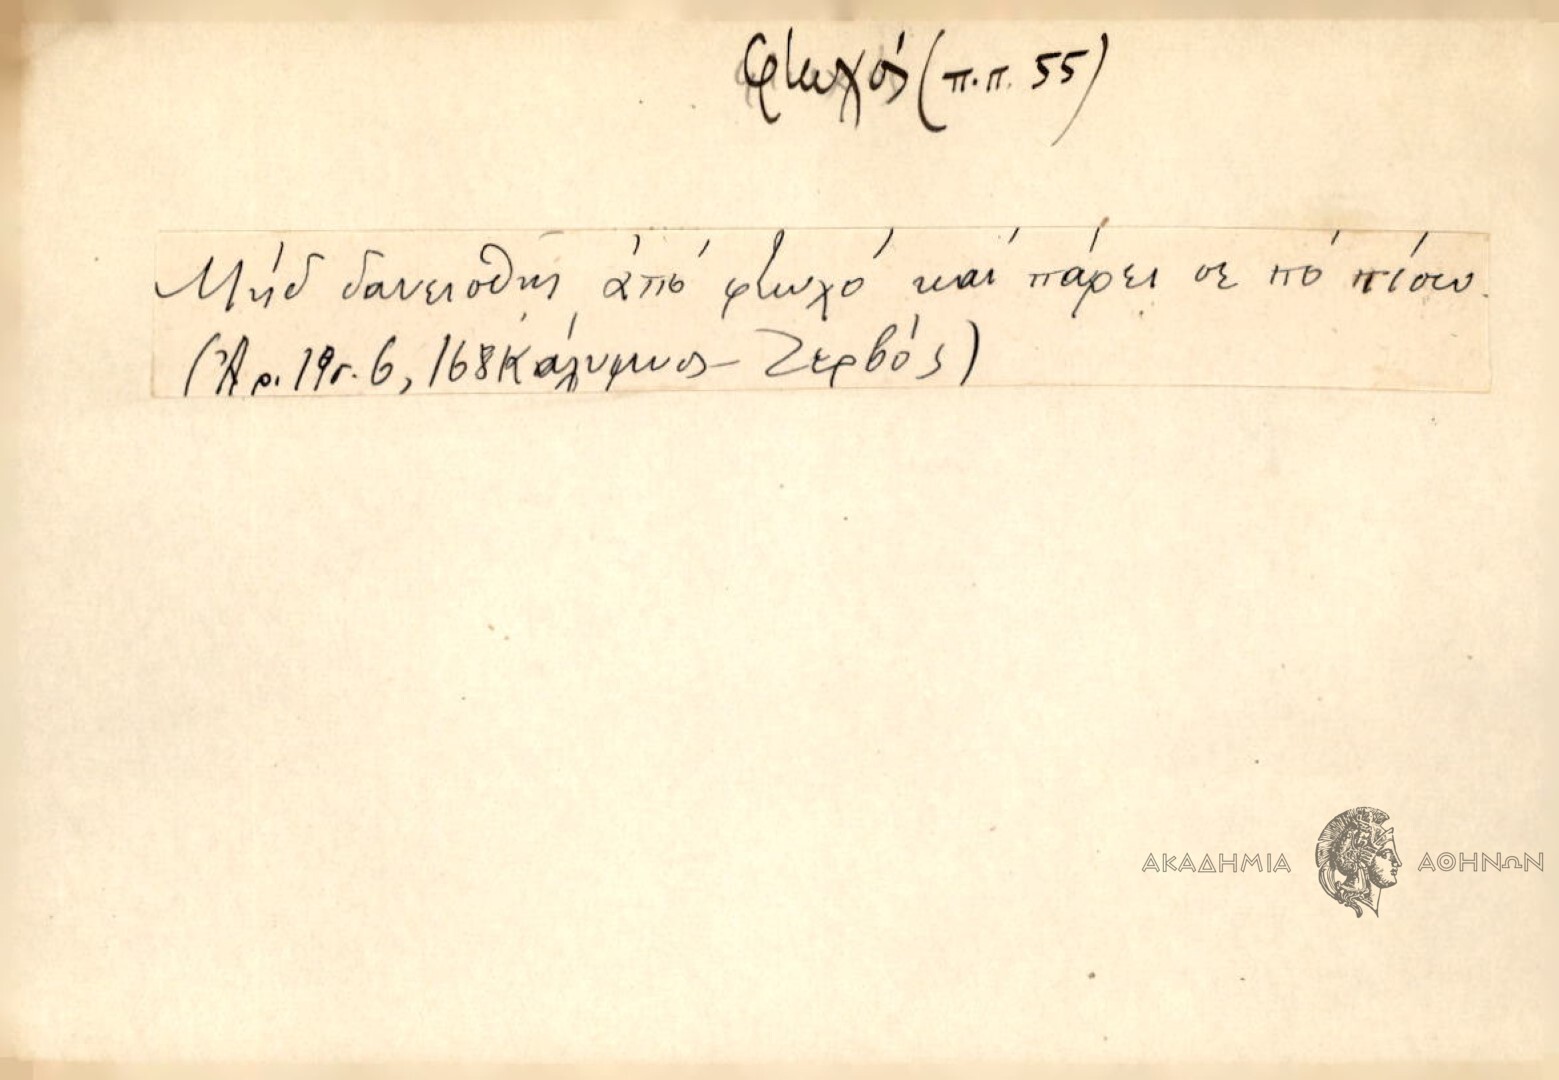 φτωχός (π.π. 55)
Μήδ δανεισθῆς ἀπό φτωχό καί πάρει σε πό πίσω.
(Ἀρ. 196, 168 Κάλυμνος – Ζερβός)
ΑΚΑΔΗΜΙΑ ΑΘΗΝΩΝ